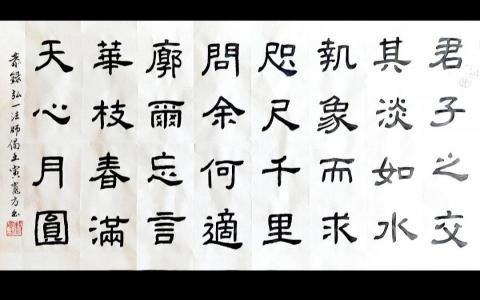 君子之交
其淡如水
執象而求
咫尺千里
問余何適
廓爾忘言
華枝春滿
天心月圓
恭錄弘一法師偈壬寅